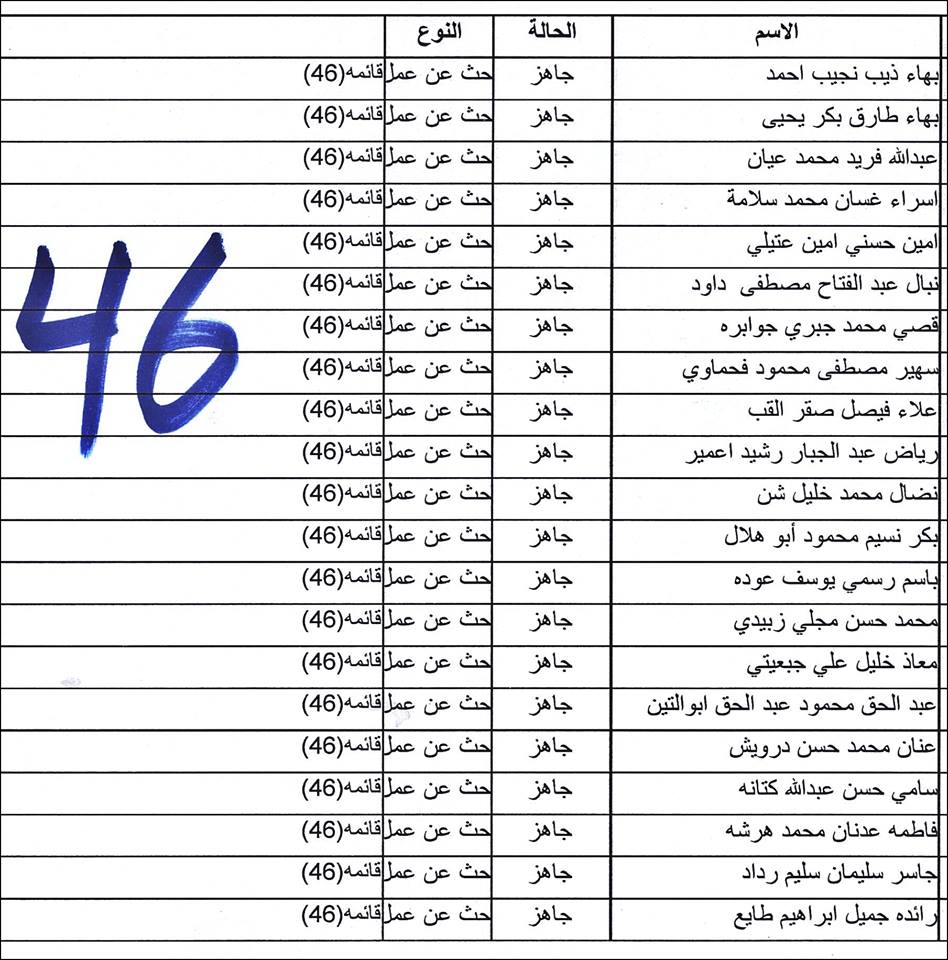 الاسم الحالة النوع
بهاء ذيب نجيب احمد جاهز حث عن عمل قائمه(46)
بهاء طارق بكر يحيى جاهز حث عن عمل قائمه(46)
عبدالله فريد محمد عيان جاهز حث عن عمل قائمه(46)
اسراء غسان محمد سلامة جاهز حث عن عمل قائمه(46)
امين حسني امين عتيلي جاهز حث عن عمل قائمه(46)
نبال عبد الفتاح مصطفى داود جاهز حث عن عمل قائمه(46)
قصي محمد جبري جوابره جاهز حث عن عمل قائمه(46)
سهير مصطفى محمود فحماوي جاهز حث عن عمل قائمه(46)
علاء فيصل صقر القب جاهز حث عن عمل قائمه(46)
رياض عبد الجبار رشيد اعمير جاهز حث عن عمل قائمه(46)
نضال محمد خليل شن جاهز حث عن عمل قائمه(46)
بكر نسيم محمود أبو هلال جاهز حث عن عمل قائمه(46)
باسم رسمي يوسف عوده جاهز حث عن عمل قائمه(46)
محمد حسن مجلي زبيدي جاهز حث عن عمل قائمه(46)
معاذ خليل علي جبعيتي جاهز حث عن عمل قائمه(46)
عبد الحق محمود عبد الحق ابوالتين جاهز حث عن عمل قائمه(46)
عنان محمد حسن درويش جاهز حث عن عمل قائمه(46)
سامي حسن عبدالله كتانه جاهز حث عن عمل قائمه(46)
فاطمه عدنان محمد هرشه جاهز حث عن عمل قائمه(46)
جاسر سليمان سليم رداد جاهز حث عن عمل قائمه(46)
رائده جميل ابراهيم طايع جاهز حث عن عمل قائمه(46)
46